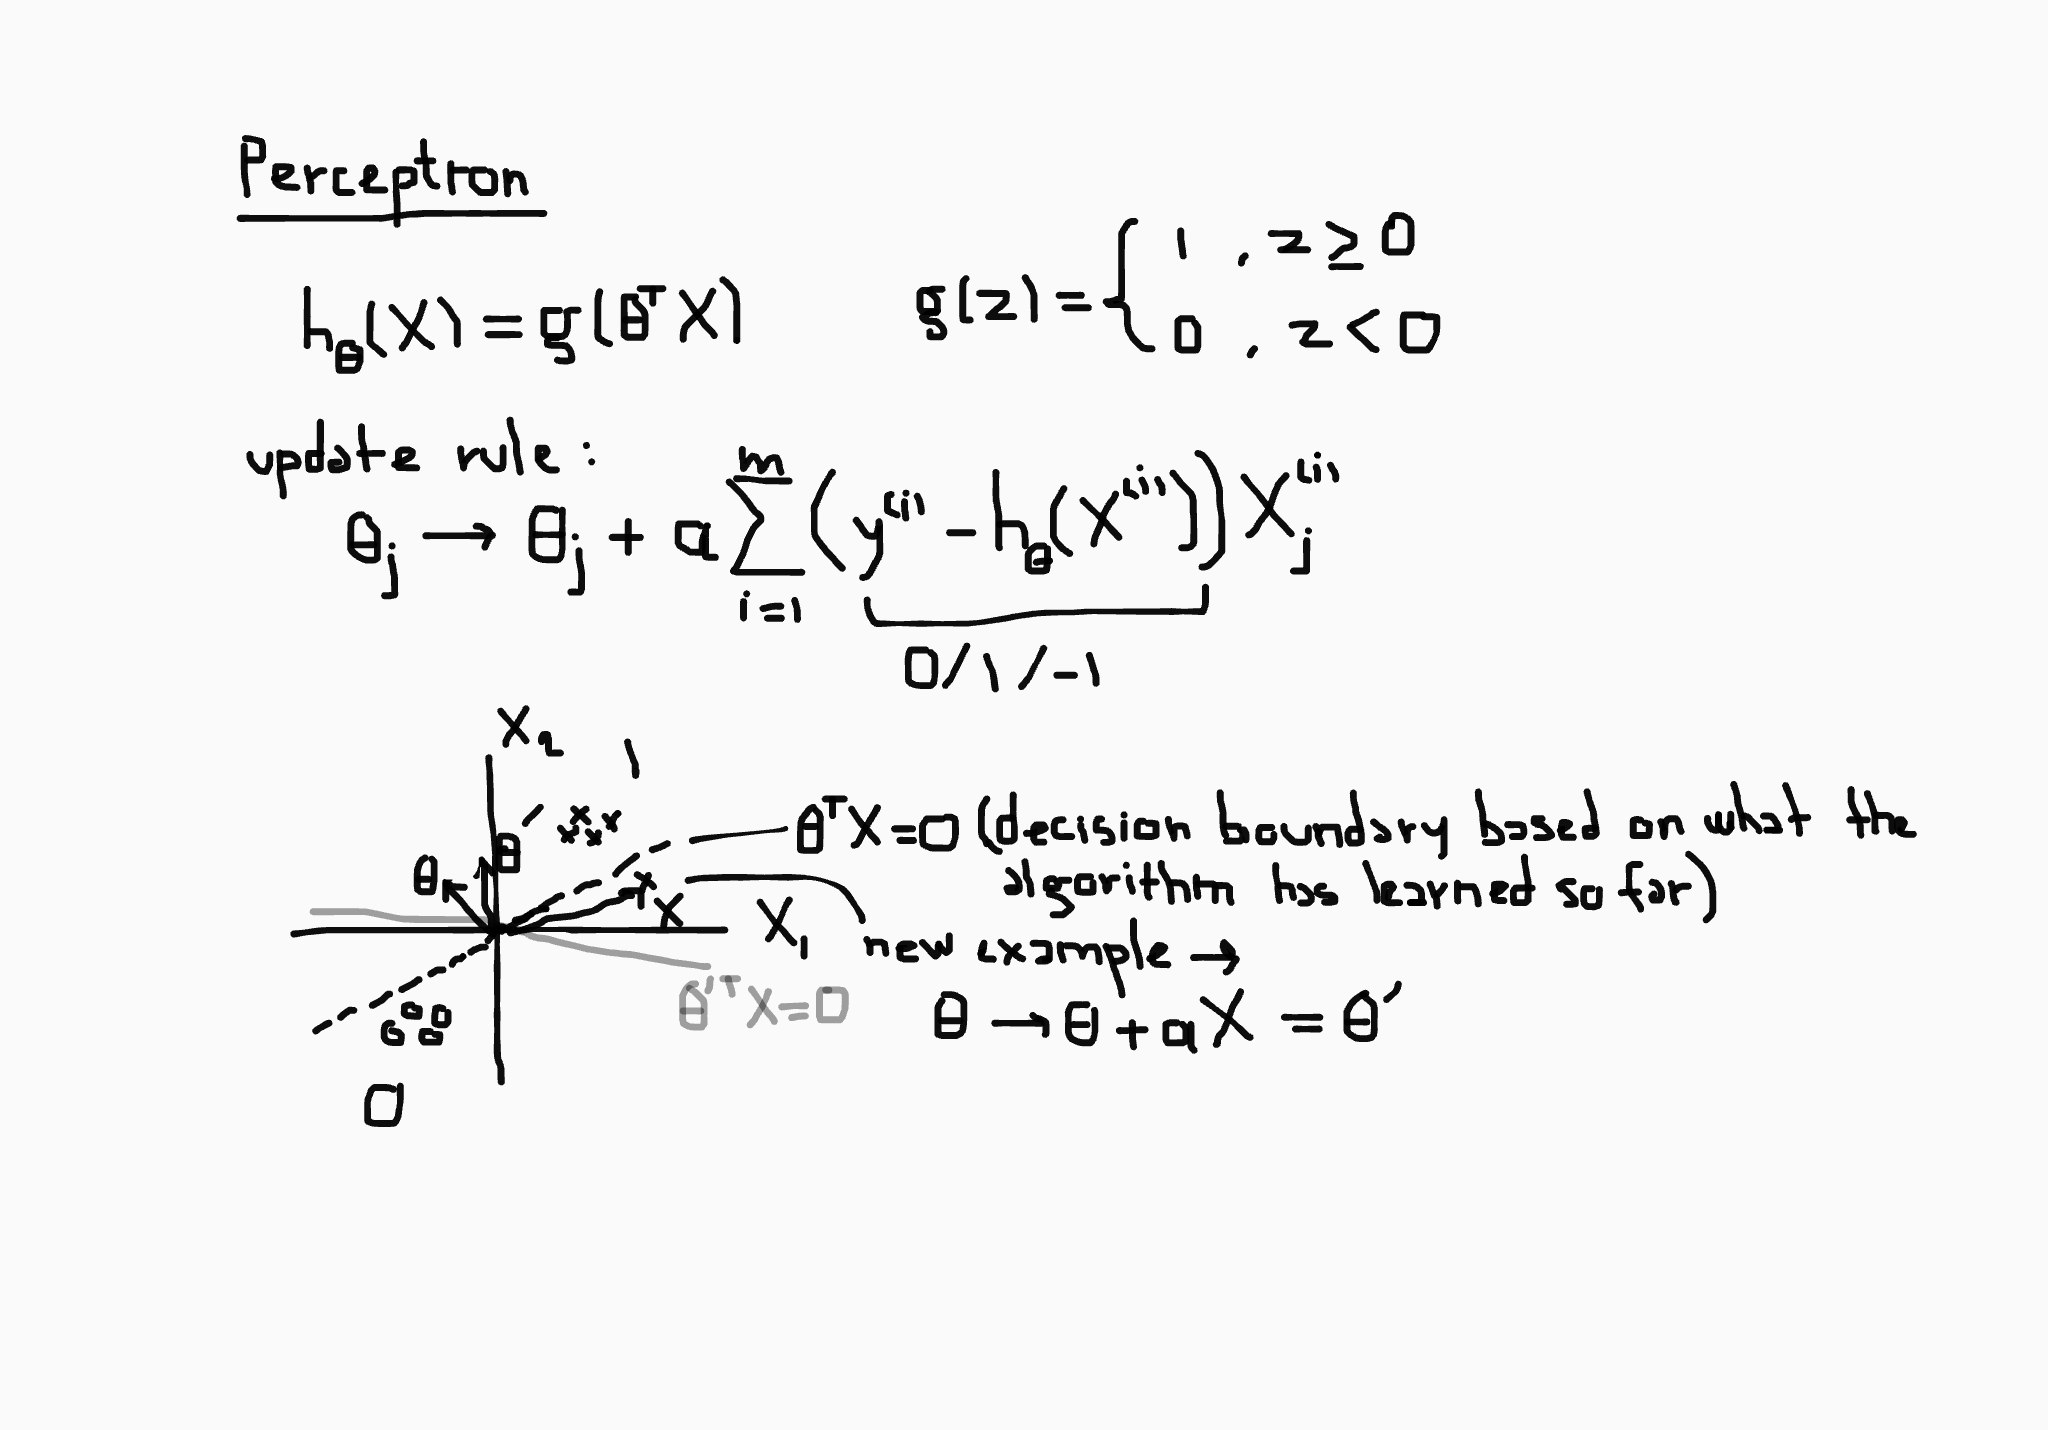 Perceptron
h_θ(X) = g(θ^T X)
g(z) = { 1 , z ≥ 0
0 , z < 0
update rule:
θ_j → θ_j + a ∑_{i=1}^{m} (y^(i) - h_θ(X^(i))) X_j^(i)
0/1/-1
X_2
1
θ'
θ
θ^T X = 0 (decision boundary based on what the
algorithm has learned so far)
X
X_1
new example →
θ'^T X = 0
θ → θ + aX = θ'
0